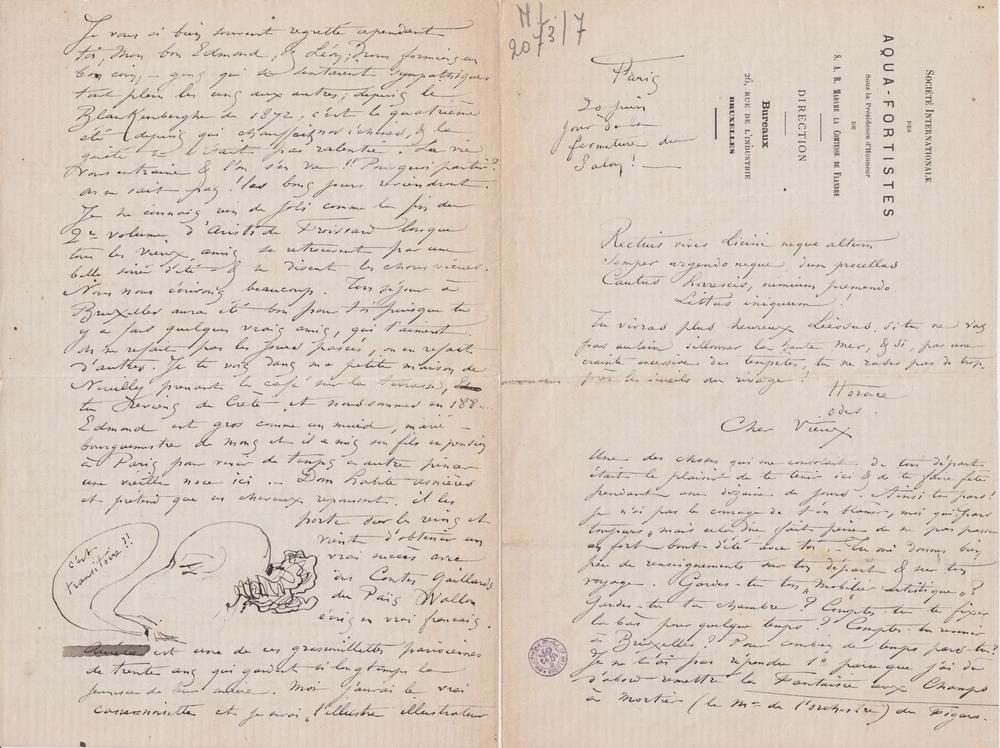 M/
2073/7
SOCIÉTÉ INTERNATIONALE
DES
AQUA-FORTISTES
Sous la Présidence d'Honneur
DE
S. A. R. MADAME LA COMTESSE DE FLANDRE
DIRECTION
Bureaux
26, RUE DE L'INDUSTRIE
BRUXELLES
Paris
20 juin
jour de la
fermeture du
Salon! —
Rectius vives Licini neque altum
Semper urgendo neque, dum procellas
Cautus horrescis, nimium premendo
Littus iniquum!
Tu vivras plus heureux Liessus, si tu ne vas
pas au loin sillonner la haute mer, & si, par une
crainte excessive des tempêtes, tu ne rases pas de trop
près les écueils du rivage!
Horace
odes.
Cher Vieux
Une des choses qui me consolait de ton départ
était le plaisir de te tenir ici & de te faire fête
pendant une dizaine de jours. Ainsi tu pars!
je n'ai pas le courage de t'en blamer, moi qui pars
toujours, mais cela me fait peine de ne pas passer
un fort bout d'été avec toi... Tu me donnes bien
peu de renseignements sur ton départ & sur ton
voyage. Gardes-tu ton „Mobilier Artistique"?
Gardes-tu ta chambre? Comptes-tu te fixer
là bas pour quelque temps? Comptes-tu revenir
à Bruxelles? Pour combien de temps pars-tu?
Je ne t'ai pas répondu 1° parce que j'ai dû
d'abord remettre la Fantaisie aux Champs
à Mortier (le Mr de l'orchestre) du Figaro.
Je vous ai bien souvent regretté cependant
toi, mon bon Edmond, & Léon; nous formions un
bon coin, — gens qui se sentaient sympathiques
tout plein les uns aux autres; depuis le
Blankenberghe de 1872, c'est le quatrième
été depuis qui chauffait nos cranes, & la
gaieté ne s'était pas ralentie. La vie
vous entraine & l'on s'en va!! Pourquoi partir?
on ne sait pas! les bons jours reviendront.
Je ne connais rien de joli comme la fin du
2me volume d'Aristide Froissard lorsque
tous les vieux amis se retrouvent par une
belle soirée d'été & se disent les choses vieilles.
Nous nous écrirons beaucoup. Ton séjour à
Bruxelles aura été bon pour toi puisque tu
y as fait quelques vrais amis, qui t'aiment.
On ne refait pas les jours passés, on en refait
d'autres. Je te vois dans ma petite maison de
Neuilles prenant le café sur la terrasse,
tu reviens de Crète et nous sommes en 188...
Edmond est gros comme un muid, marié —
bourgmestre de Mons et il a mis son fils en pension
à Paris pour venir de temps en autre pincer
une vieille noce ici. — Dom habite Asnières
et prétend que ses cheveux repoussent. il les
porte sur les reins et
vient d'obtenir un
vrai succès avec
des Contes Gaillards
du Païs Wallon
écris en vrai français.
c'est
transitoire!!
est une de ces parisiennes
de trente ans qui gardent si longtemps la
jeunesse de leur Moi j'aurai le vrai
et je serai „l'illustre illustrateur